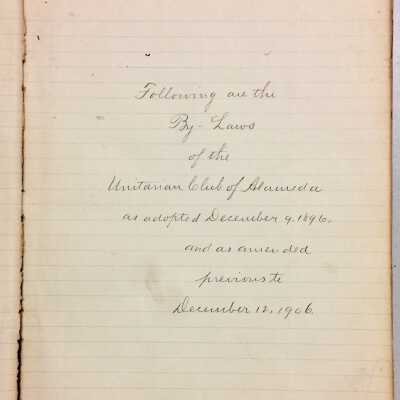 Following are the
By-Laws
of the
Unitarian Club of Alameda
as adopted December 9, 1896.
and as amended
previous to
December 12, 1906.